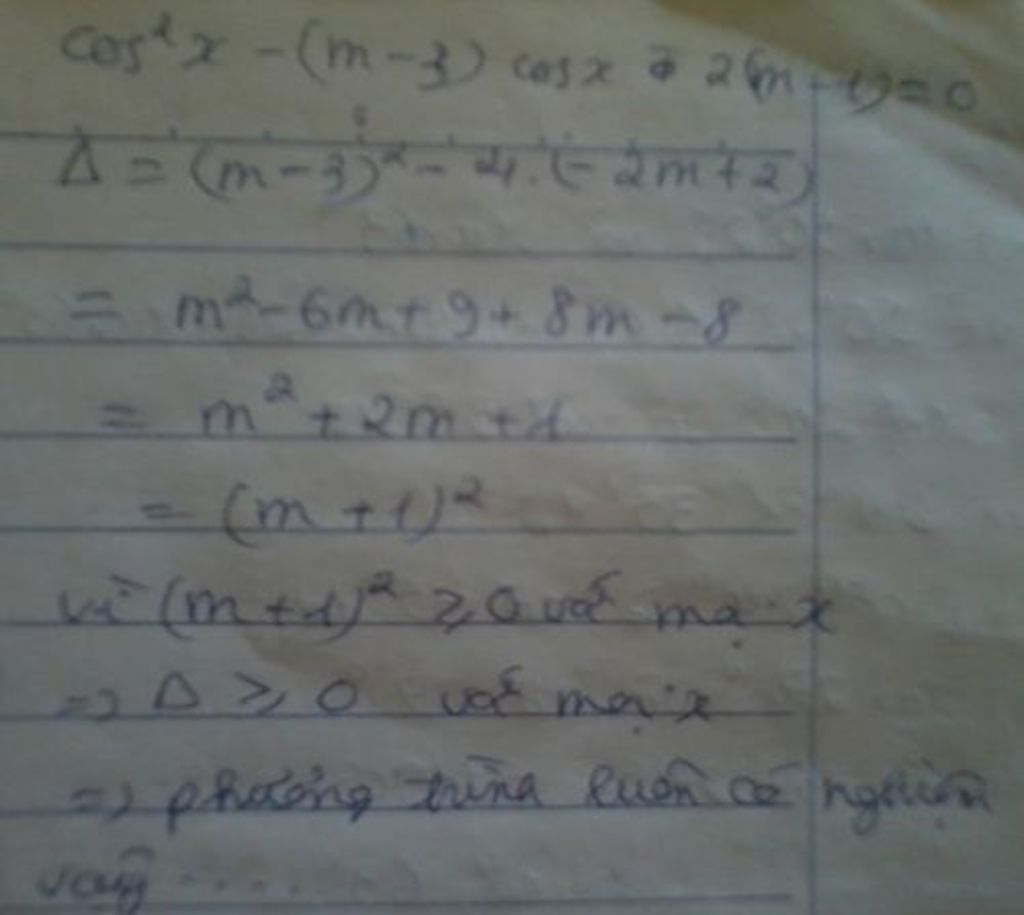 cos²x - (m - 3) cosx - 2(m - 1) = 0
Δ = (m - 3)² - 4. (- 2m + 2)
= m² - 6m + 9 + 8m - 8
= m² + 2m + 1
= (m + 1)²
vì (m + 1)² ≥ 0 với mọi x
=> Δ ≥ 0 với mọi x
=> phương trình luôn có nghiệm
vậy ....